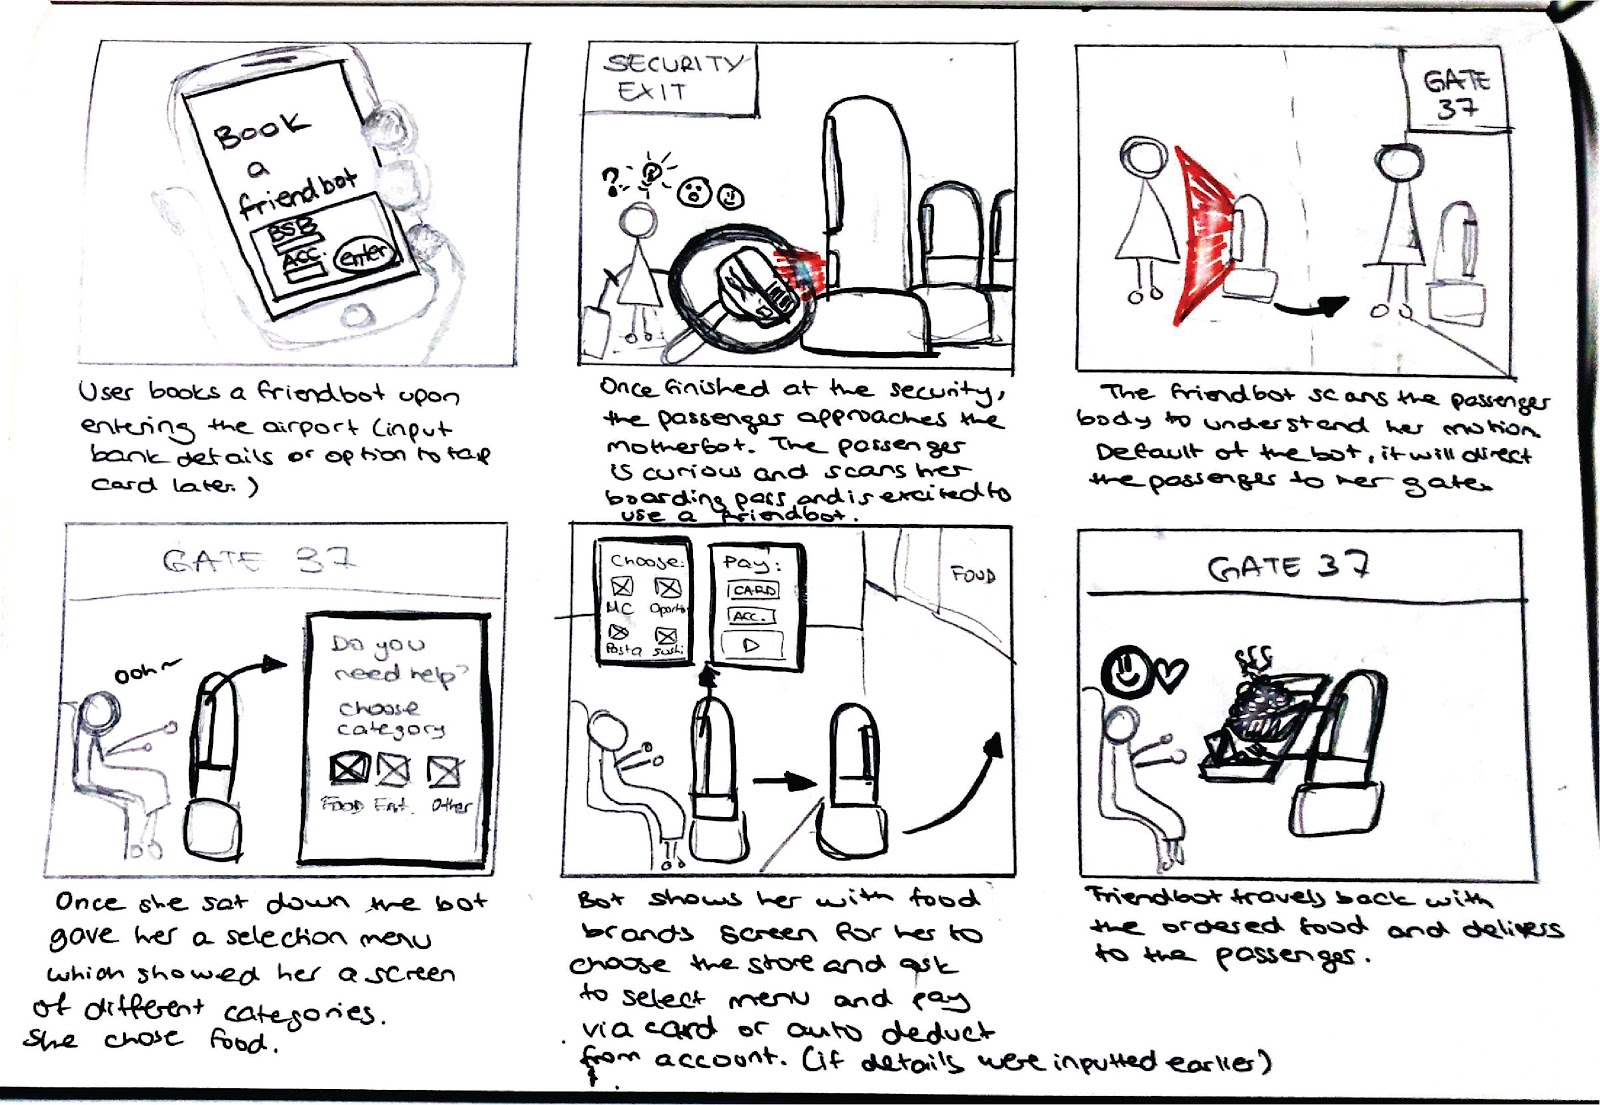 Book
a
friendbot
BSB
ACC.
enter
User books a friendbot upon
entering the airport (input
bank details or option to tap
card later.)
SECURITY
EXIT
?
Once finished at the security,
the passenger approaches the
motherbot. The passenger
is curious and scans her
boarding pass and is excited to
use a friendbot.
GATE
37
The friendbot scans the passenger
body to understand her motion.
Default of the bot, it will direct
the passenger to her gate.
GATE 37
ooh~
Do you
need help?
choose
category
FOOD Ent. Other
Once she sat down the bot
gave her a selection menu
which showed her a screen
of different categories.
She chose food.
Choose:
MC Oporto
Pasta Sushi
Pay:
CARD
ACC.
FOOD
Bot shows her with food
brands screen for her to
choose the store and ask
to select menu and pay
via card or auto deduct
from account. (if details were inputted earlier)
GATE 37
Friendbot travels back with
the ordered food and delivers
to the passenger.